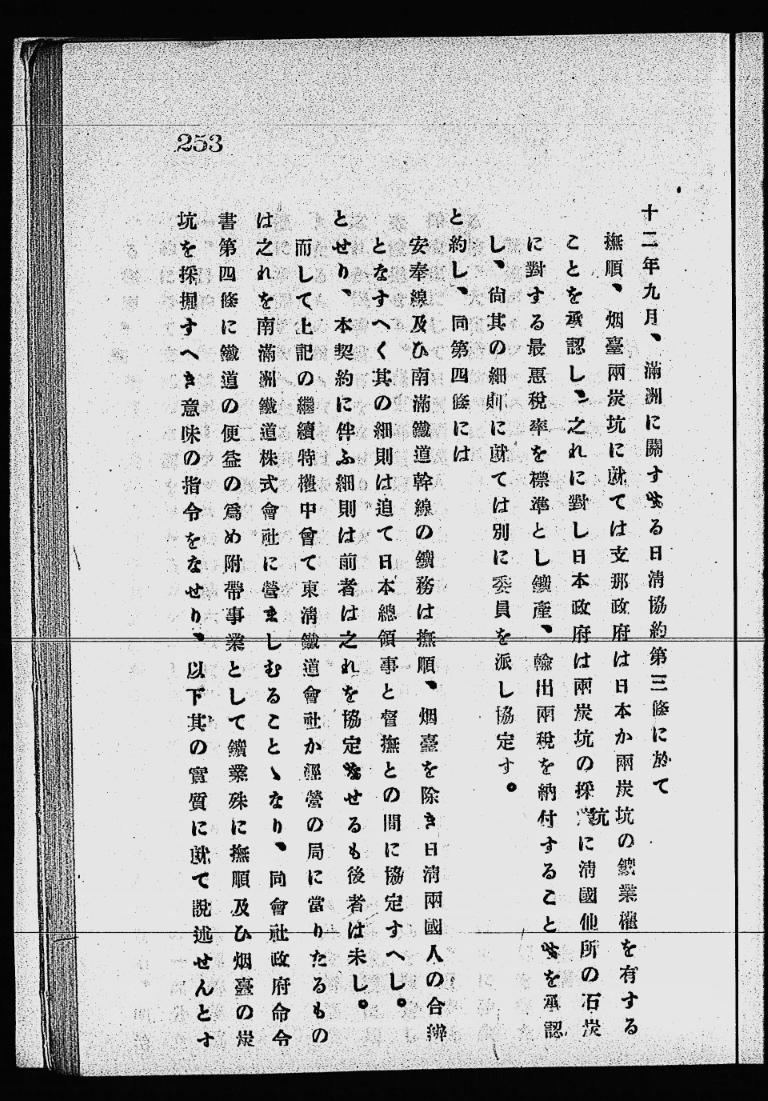 253
十二年九月、滿洲に關する日淸協約第三條に於て
撫順、烟臺兩炭坑に就ては支那政府は日本か兩炭坑の鑛業權を有する
ことを承認し、之れに對し日本政府は兩炭坑の採に淸國他所の石炭
坑
に對する最惠稅率を標準とし鑛產、輸出兩稅を納付することを承認
し、尙其の細則に就ては別に委員を派し協定す。
と約し、同第四條には
安奉線及ひ南滿鐵道幹線の鑛務は撫順、烟臺を除き日淸兩國人の合辦
となすへく其の細則は追て日本總領事と督撫との間に協定すへし。
とせり、本契約に伴ふ細則は前者は之れを協定なせるも後者は未し。
而して上記の繼續特權中曾て東淸鐵道會社か經營の局に當りたるもの
は之れを南滿洲鐵道株式會社に營ましむることゝなり、同會社政府命令
書第四條に鐵道の便益の爲め附帶事業として鑛業殊に撫順及ひ烟臺の炭
坑を採掘すへき意味の指令をなせり、以下其の實質に就て說述せんとす